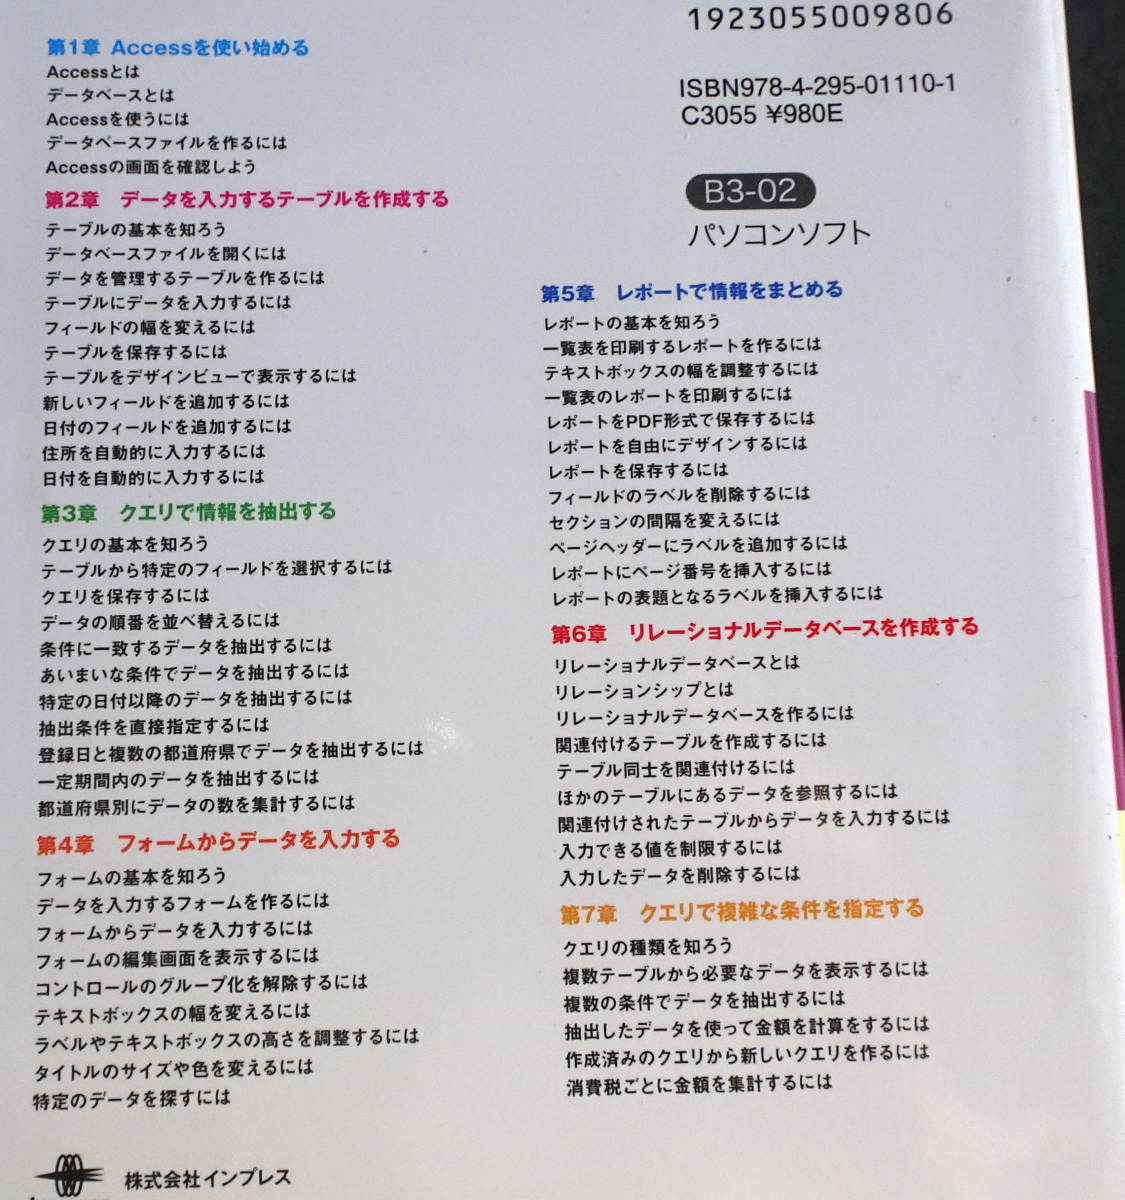 1923055009806
ISBN978-4-295-01110-1
C3055 ¥980E
B3-02
パソコンソフト
第1章 Accessを使い始める
Accessとは
データベースとは
Accessを使うには
データベースファイルを作るには
Accessの画面を確認しよう
第2章 データを入力するテーブルを作成する
テーブルの基本を知ろう
データベースファイルを開くには
データを管理するテーブルを作るには
テーブルにデータを入力するには
フィールドの幅を変えるには
テーブルを保存するには
テーブルをデザインビューで表示するには
新しいフィールドを追加するには
日付のフィールドを追加するには
住所を自動的に入力するには
日付を自動的に入力するには
第3章 クエリで情報を抽出する
クエリの基本を知ろう
テーブルから特定のフィールドを選択するには
クエリを保存するには
データの順番を並べ替えるには
条件に一致するデータを抽出するには
あいまいな条件でデータを抽出するには
特定の日付以降のデータを抽出するには
抽出条件を直接指定するには
登録日と複数の都道府県でデータを抽出するには
一定期間内のデータを抽出するには
都道府県別にデータの数を集計するには
第4章 フォームからデータを入力する
フォームの基本を知ろう
データを入力するフォームを作るには
フォームからデータを入力するには
フォームの編集画面を表示するには
コントロールのグループ化を解除するには
テキストボックスの幅を変えるには
ラベルやテキストボックスの高さを調整するには
タイトルのサイズや色を変えるには
特定のデータを探すには
第5章 レポートで情報をまとめる
レポートの基本を知ろう
一覧表を印刷するレポートを作るには
テキストボックスの幅を調整するには
一覧表のレポートを印刷するには
レポートをPDF形式で保存するには
レポートを自由にデザインするには
レポートを保存するには
フィールドのラベルを削除するには
セクションの間隔を変えるには
ページヘッダーにラベルを追加するには
レポートにページ番号を挿入するには
レポートの表題となるラベルを挿入するには
第6章 リレーショナルデータベースを作成する
リレーショナルデータベースとは
リレーションシップとは
リレーショナルデータベースを作るには
関連付けるテーブルを作成するには
テーブル同士を関連付けるには
ほかのテーブルにあるデータを参照するには
関連付けされたテーブルからデータを入力するには
入力できる値を制限するには
入力したデータを削除するには
第7章 クエリで複雑な条件を指定する
クエリの種類を知ろう
複数テーブルから必要なデータを表示するには
複数の条件でデータを抽出するには
抽出したデータを使って金額を計算をするには
作成済みのクエリから新しいクエリを作るには
消費税ごとに金額を集計するには
株式会社インプレス